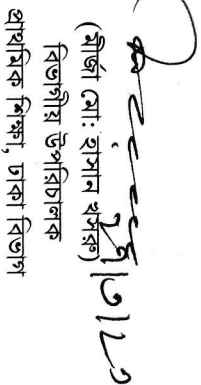 (মীর্জা মো: হাসান খসরু)
বিভাগীয় উপপরিচালক
প্রাথমিক শিক্ষা, ঢাকা বিভাগ